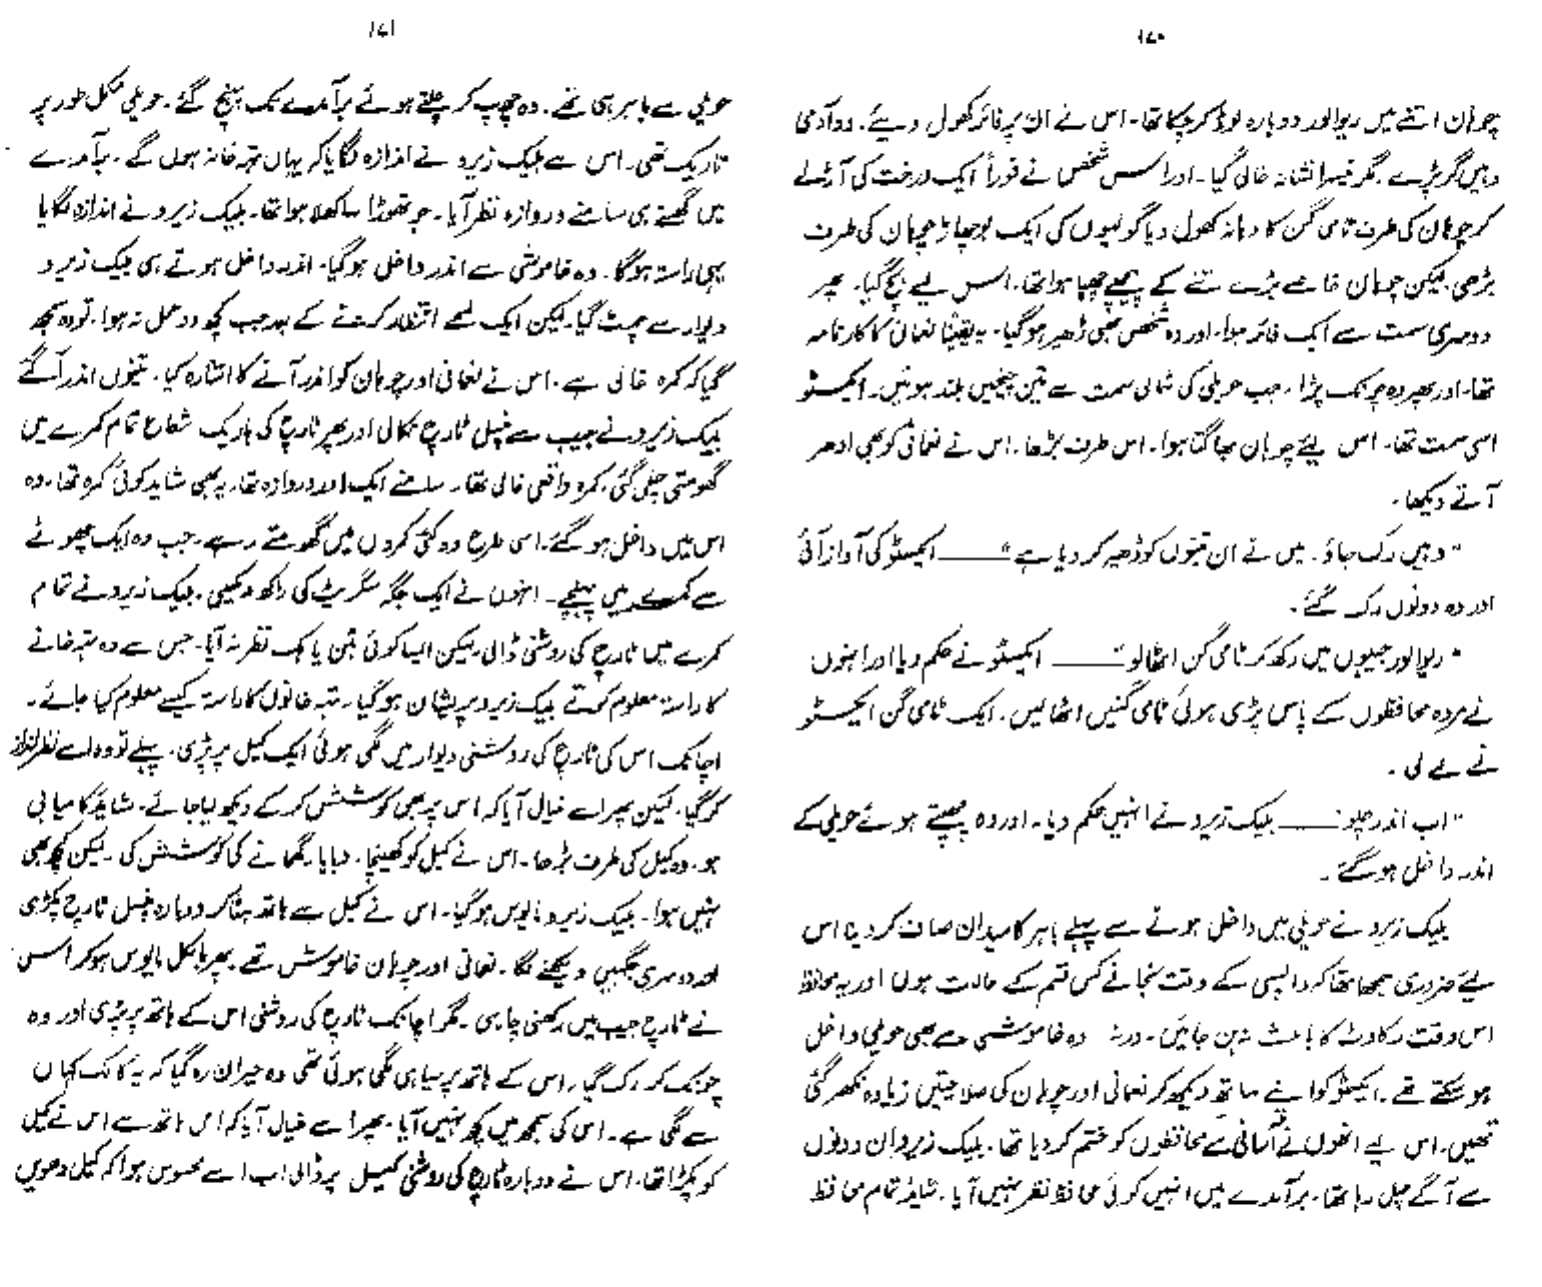 ۱۷۰
چوہان اتنے میں ریوالور دوبارہ لوڈ کر چکا تھا۔ اس نے ان پر فائر کھول دیئے۔ دو آدمی
وہیں گر پڑے۔ مگر تیسرا نشانہ خالی گیا۔ اور اس شخص نے فوراً ایک درخت کی آڑ لے
کر چوہان کی طرف ٹامی گن کا دہانہ کھول دیا گولیوں کی ایک بوچھاڑ چوہان کی طرف
بڑھی۔ لیکن چوہان خاصے بڑے تنے کے پیچھے چھپا ہوا تھا۔ اس لیے بچ گیا۔ پھر
دوسری سمت سے ایک فائر ہوا۔ اور وہ شخص بھی ڈھیر ہو گیا۔ یہ یقیناً نعمانی کا کارنامہ
تھا۔ اور پھر وہ چونک پڑا۔ جب حویلی کی شمالی سمت سے تین چیخیں بلند ہوئیں۔ ایکسٹو
اسی سمت تھا۔ اس لیئے چوہان بھاگتا ہوا۔ اس طرف بڑھا۔ اس نے نعمانی کو بھی ادھر
آتے دیکھا۔
"وہیں رک جاؤ۔ میں نے ان تینوں کو ڈھیر کر دیا ہے"ـــــــ ایکسٹو کی آواز آئی
اور وہ دونوں رک گئے۔
"ریوالور جیبوں میں رکھ کر ٹامی گن اٹھا لو"ـــــــ ایکسٹو نے حکم دیا اور انہوں
نے مردہ محافظوں کے پاس پڑی ہوئی ٹامی گنیں اٹھا لیں۔ ایک ٹامی گن ایکسٹو
نے لے لی۔
"اب اندر چلو"ـــــــ بلیک زیرو نے انہیں حکم دیا۔ اور وہ چھپتے ہوئے حویلی کے
اندر داخل ہو گئے۔
بلیک زیرو نے حویلی میں داخل ہونے سے پہلے باہر کا میدان صاف کر دینا اس
لیے ضروری سمجھا تھا کہ واپسی کے وقت نجانے کس قسم کے حالات ہوں اور یہ محافظ
اس وقت رکاوٹ کا باعث نہ بن جائیں۔ ورنہ وہ خاموشی سے بھی حویلی داخل
ہو سکتے تھے۔ ایکسٹو کو اپنے ساتھ دیکھ کر نعمانی اور چوہان کی صلاحیتیں زیادہ نکھر گئی
تھیں۔ اس لیے انھوں نے آسانی سے محافظوں کو ختم کر دیا تھا۔ بلیک زیرو ان دونوں
سے آگے چل رہا تھا۔ برآمدے میں انہیں کوئی محافظ نظر نہیں آیا۔ شاید تمام محافظ
۱۷۱
حویلی سے باہر ہی تھے۔ وہ چھپ کر چلتے ہوئے برآمدے تک پہنچ گئے۔ حویلی مکمل طور پر
تاریک تھی۔ اس سے بلیک زیرو نے اندازہ لگایا کہ یہاں تہہ خانہ ہوں گے۔ برآمدے
میں گھستے ہی سامنے دروازہ نظر آیا۔ جو تھوڑا سا کھلا ہوا تھا۔ بلیک زیرو نے اندازہ لگایا
یہی راستہ ہو گا۔ وہ خاموشی سے اندر داخل ہو گیا۔ اندر داخل ہوتے ہی بلیک زیرو
دیوار سے چمٹ گیا۔ لیکن ایک لمحے انتظار کرنے کے بعد جب کچھ ردعمل نہ ہوا۔ تو وہ سمجھ
گیا کہ کمرہ خالی ہے۔ اس نے نعمانی اور چوہان کو اندر آنے کا اشارہ کیا۔ تینوں اندر آ گئے
بلیک زیرو نے جیب سے پنسل ٹارچ نکالی اور پھر ٹارچ کی باریک شعاع تمام کمرے میں
گھومتی چلی گئی۔ کمرہ واقعی خالی تھا۔ سامنے ایک اور دروازہ تھا۔ یہ بھی شاید کوئی کمرہ تھا۔ وہ
اس میں داخل ہو گئے۔ اسی طرح وہ کئی کمروں میں گھومتے رہے۔ جب وہ ایک چھوٹے
سے کمرے میں پہنچے۔ انہوں نے ایک جگہ سگریٹ کی راکھ دیکھی۔ بلیک زیرو نے تمام
کمرے میں ٹارچ کی روشنی ڈالی۔ لیکن ایسا کوئی بٹن یا ہک نظر نہ آیا۔ جس سے وہ تہہ خانے
کا راستہ معلوم کرتے بلیک زیرو پریشان ہو گیا۔ تہہ خانوں کا راستہ کیسے معلوم کیا جائے۔
اچانک اس کی ٹارچ کی روشنی دیوار میں لگی ہوئی ایک کیل پر پڑی۔ پہلے تو وہ اسے نظر انداز
کر گیا۔ لیکن پھر اسے خیال آیا کہ اس پر بھی کوشش کر کے دیکھ لیا جائے۔ شاید کامیابی
ہو۔ وہ کیل کی طرف بڑھا۔ اس نے کیل کو کھینچا۔ دبایا۔ گھمانے کی کوشش کی۔ لیکن کچھ بھی
نہیں ہوا۔ بلیک زیرو مایوس ہو گیا۔ اس نے کیل سے ہاتھ ہٹا کر دوبارہ پنسل ٹارچ پکڑی
اور دوسری جگہیں دیکھنے لگا۔ نعمانی اور چوہان خاموش تھے۔ پھر بالکل مایوس ہو کر اس
نے ٹارچ جیب میں رکھنی چاہی۔ مگر اچانک ٹارچ کی روشنی اس کے ہاتھ پر پڑی اور وہ
چونک کر رک گیا۔ اس کے ہاتھ پر سیاہی لگی ہوئی تھی وہ حیران رہ گیا کہ یہ کالک کہاں
سے لگی ہے۔ اس کی سمجھ میں کچھ نہیں آیا۔ پھر اسے خیال آیا کہ اس ہاتھ سے اس نے کیل
کو پکڑا تھا۔ اس نے دوبارہ ٹارچ کی روشنی کیل پر ڈالی اب اسے محسوس ہوا کہ کیل دھویں